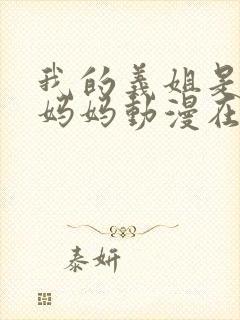 我的義姐是
妈妈動漫在
泰妍